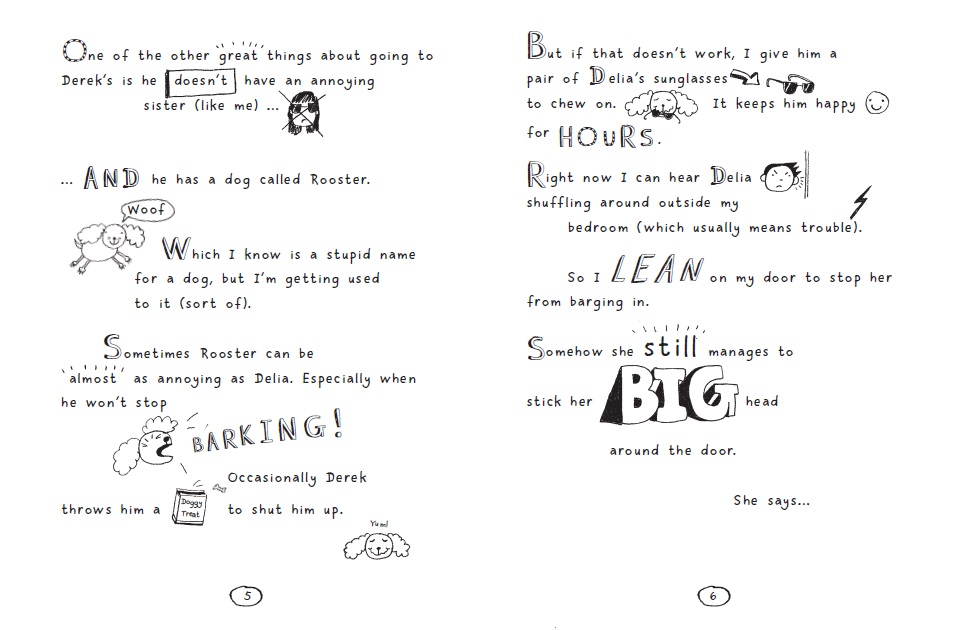 One of the other great things about going to
Derek's is he doesn't have an annoying
sister (like me) ...
... AND he has a dog called Rooster.
Woof
Which I know is a stupid name
for a dog, but I'm getting used
to it (sort of).
Sometimes Rooster can be
almost as annoying as Delia. Especially when
he won't stop
BARKING!
Occasionally Derek
throws him a Doggy Treat to shut him up.
Yum!
5
But if that doesn't work, I give him a
pair of Delia's sunglasses
to chew on. It keeps him happy
for HOURS.
Right now I can hear Delia
shuffling around outside my
bedroom (which usually means trouble).
So I LEAN on my door to stop her
from barging in.
Somehow she still manages to
stick her BIG head
around the door.
She says...
6